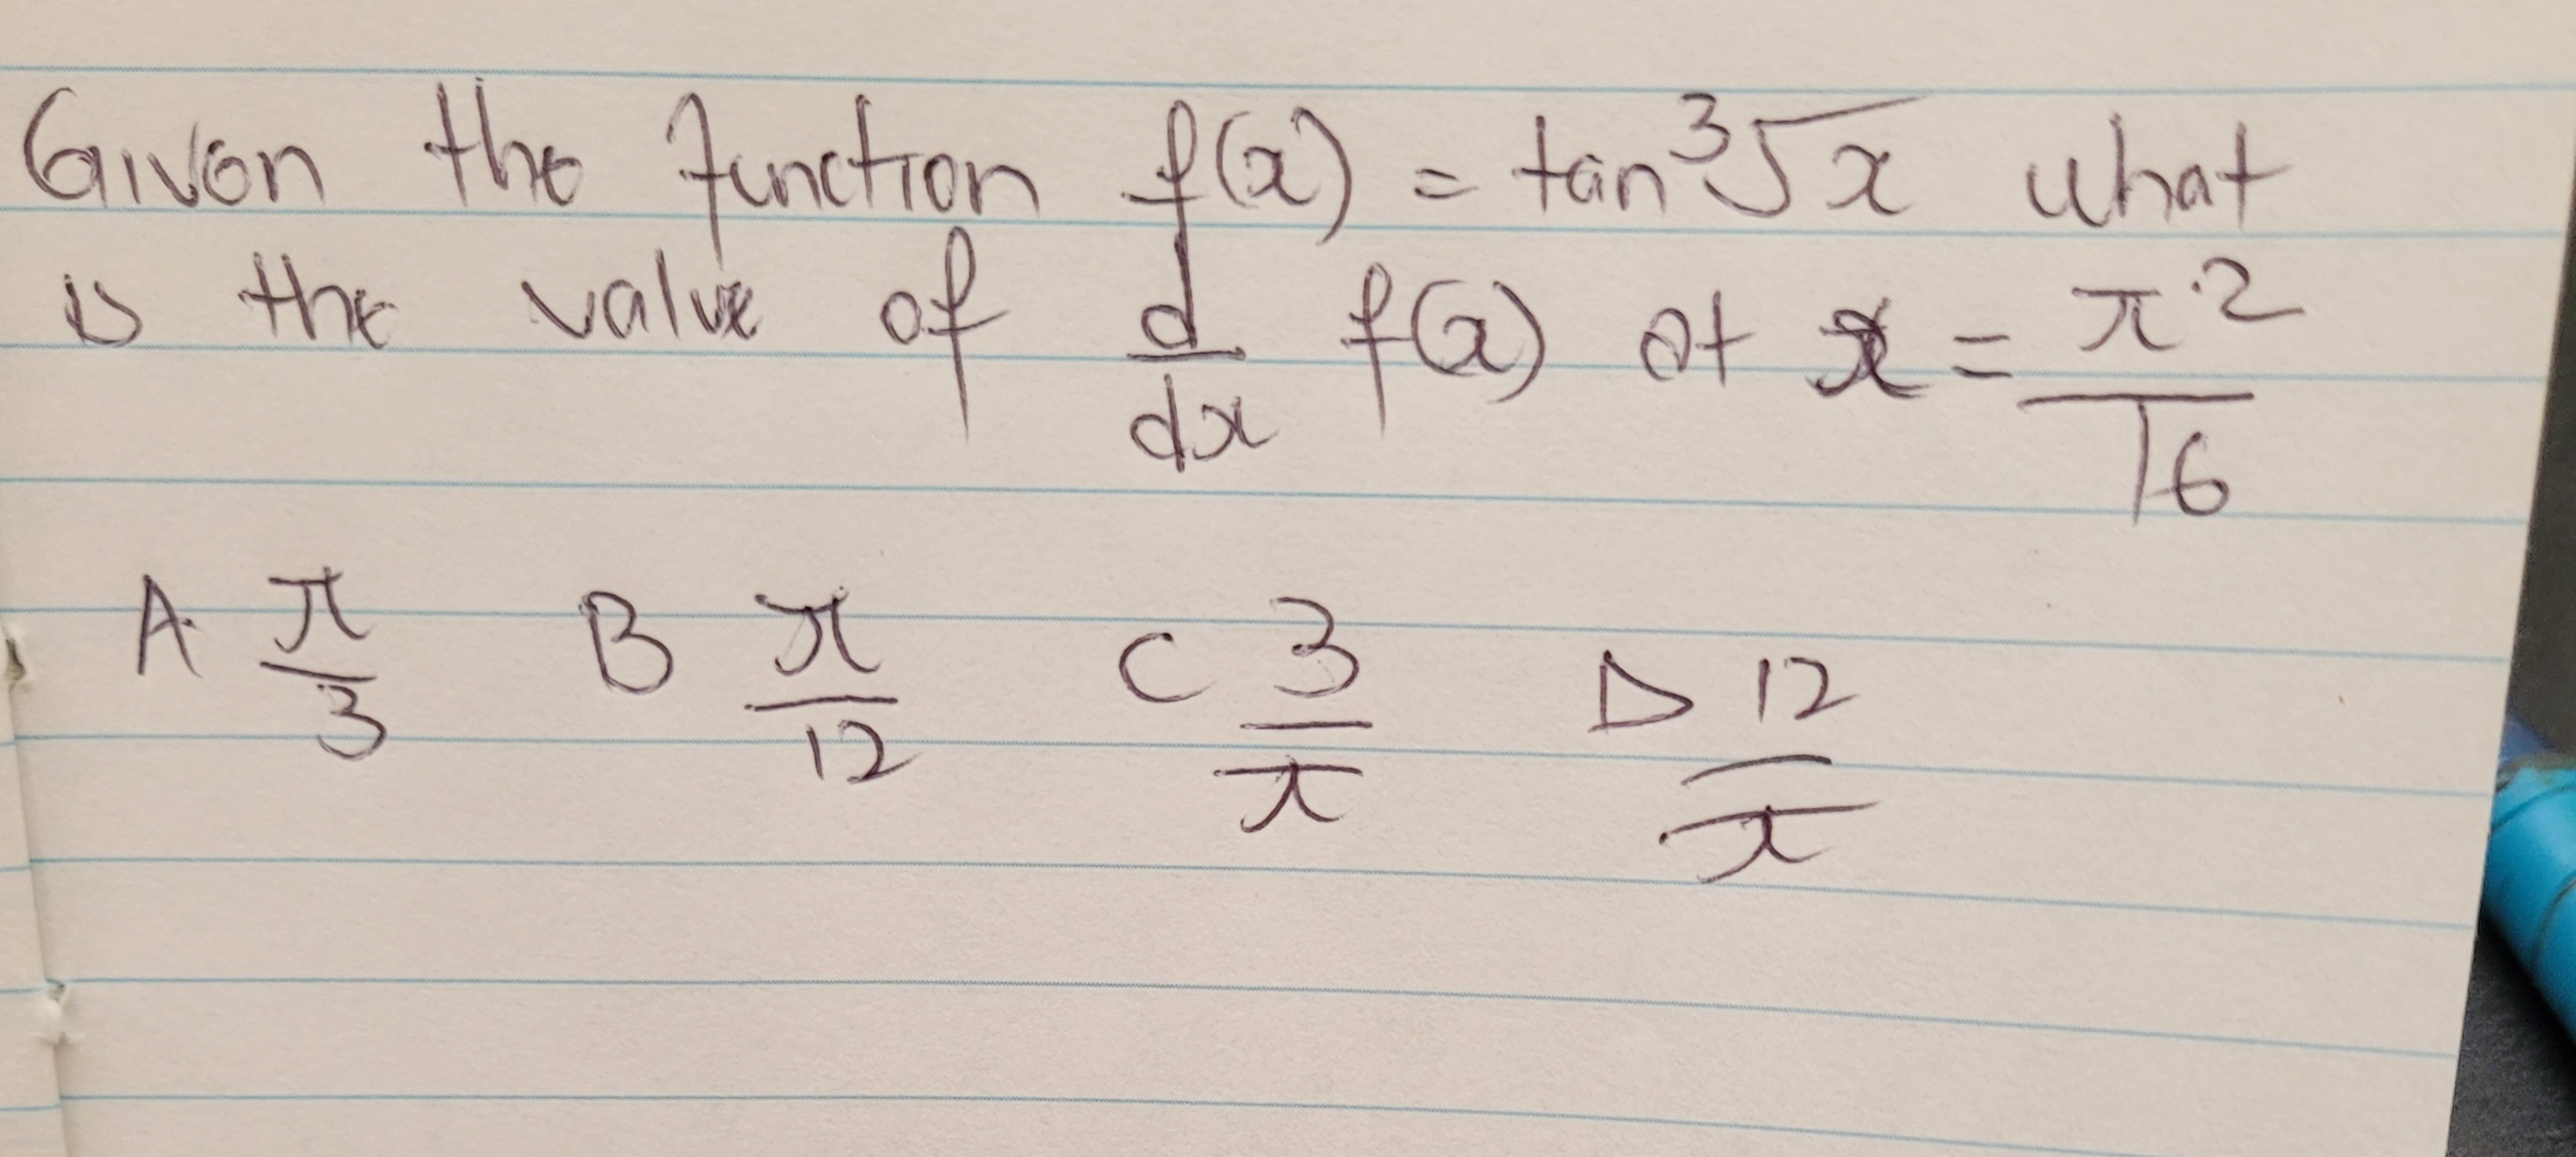 Given the function f(x) = tan³√x what
is the value of d/dx f(x) at x = π²/16
A π/3 B π/12 C 3/π D 12/π